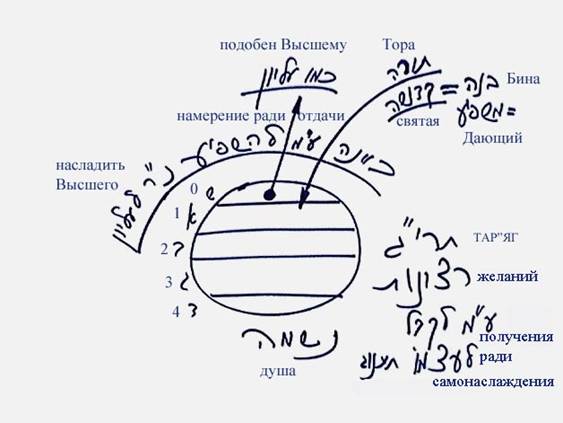 подобен Высшему
כמו עליון
Тора
תורה
קדושה = בנה Бина
святая
משפיע =
Дающий
намерение ради отдачи
כוונה ע"מ להשפיע נ"ר לעליון
насладить
Высшего
0 ש
1 א
2 ב
3 ג
4 ד
נשמה
душа
תרי"ג ТАР"ЯГ
רצונות желаний
ע"מ לקבל
получения
לעצמו תענוג ради
самонаслаждения